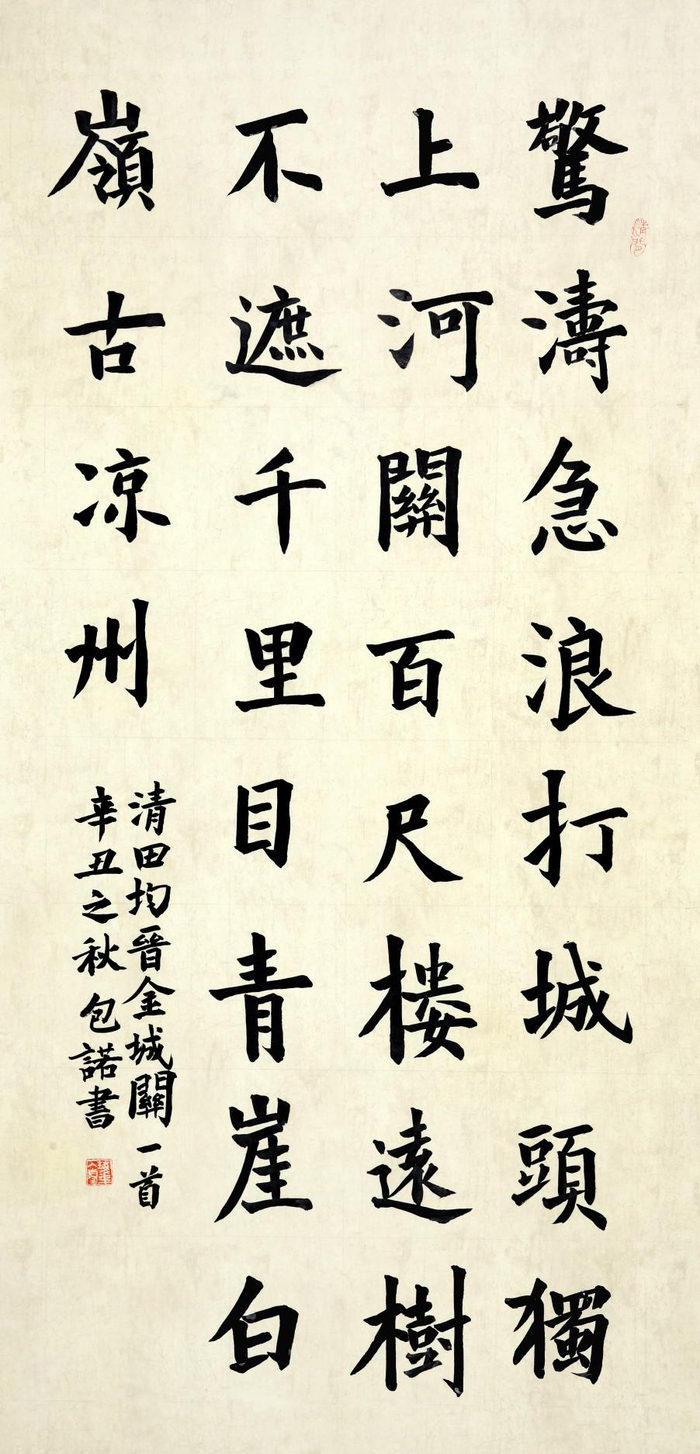 驚濤急浪打城頭獨
上河關百尺樓遠樹
不遮千里目青崖白
嶺古凉州
清田均晉金城關一首
辛丑之秋包諾書